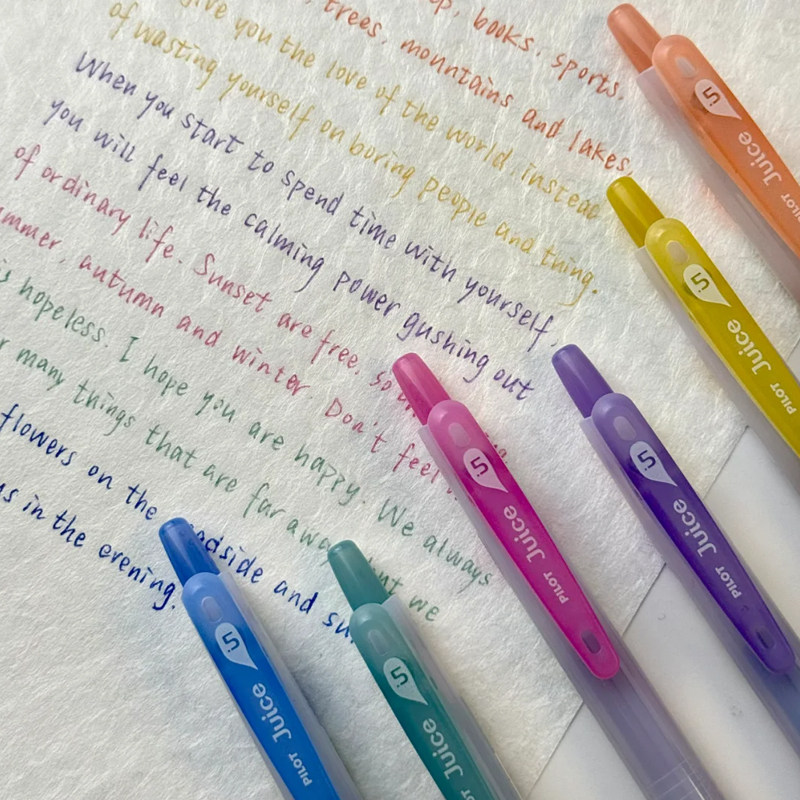 books. sports.
trees, mountains and lakes,
give you the love of the world instead
of wasting yourself on boring people and thing.
When you start to spend time with yourself,
you will feel the calming power gushing out
of ordinary life. Sunset are free, so
autumn and winter. Don't feel
is hopeless. I hope you are happy. We always
many things that are far away but we
flowers on the roadside and
in the evening.
.5 Juice PILOT
.5 Juice PILOT
.5 Juice PILOT
.5 Juice PILOT
.5 Juice
.5 Juice PILOT